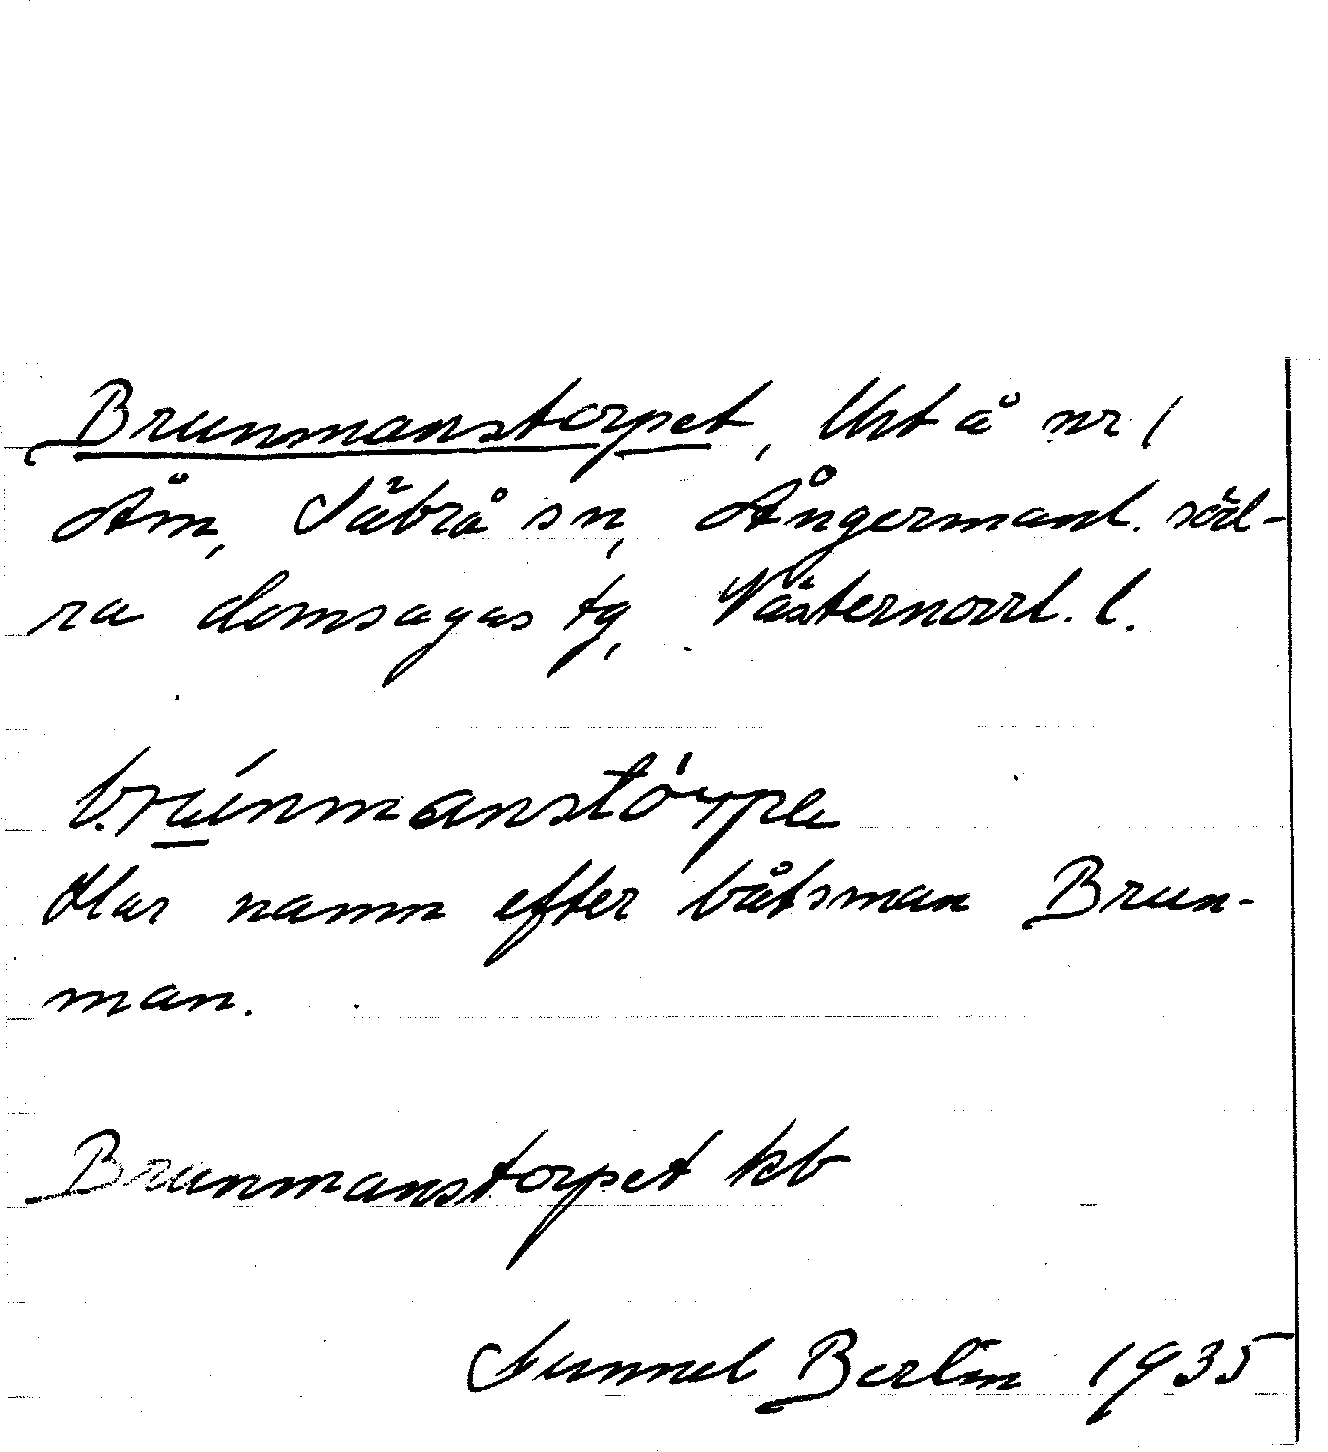 Brunmanstorpet, Utå nr 1
Åm, Säbrå sn, Ångermanl. söd-
ra domsagas tg, Västernorrl. l.
brúnmanstòrpe
Har namn efter båtsman Brun-
man.
Brunmanstorpet kb
Gunnel Berlin 1935